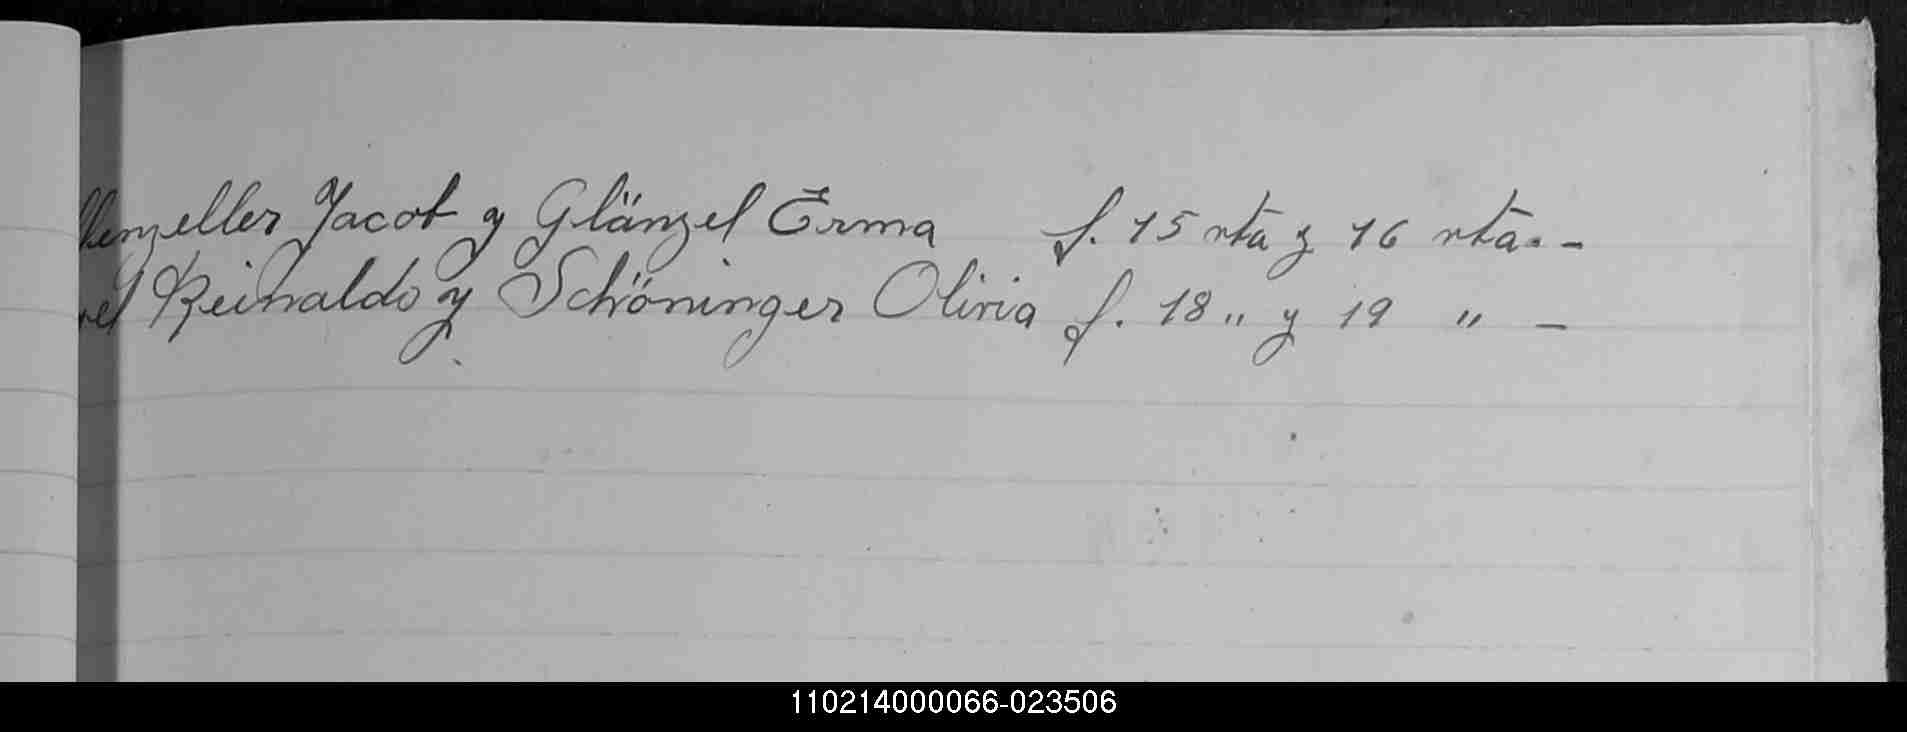 Jacob y Glänzel Erma f. 15 vta y 16 vta. -
Reinaldo y Schöninger Olivia f. 18 " y 19 " -
110214000066-023506